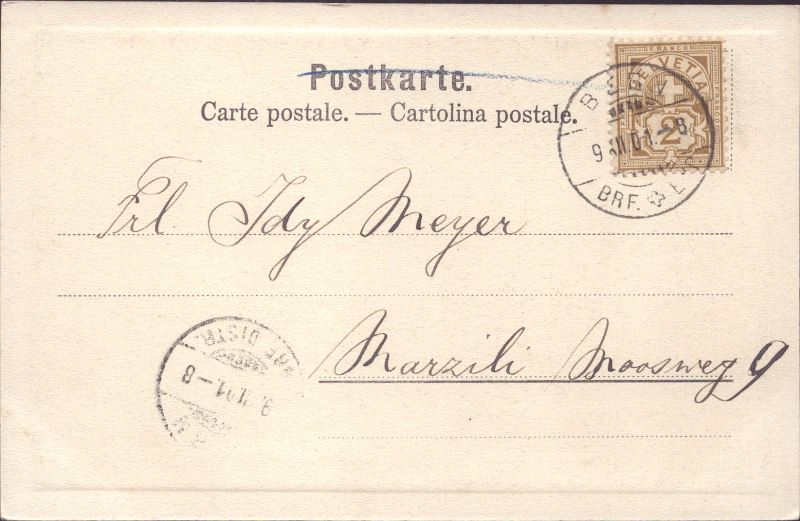 Postkarte.
Carte postale. — Cartolina postale.
FRANCO
HELVETIA
FRANCO
2
9 XII 01 — 8
BRF.
Frl. Idy Meyer
Marzili Moosweg 9
BRF. DISTR.
01 — 8